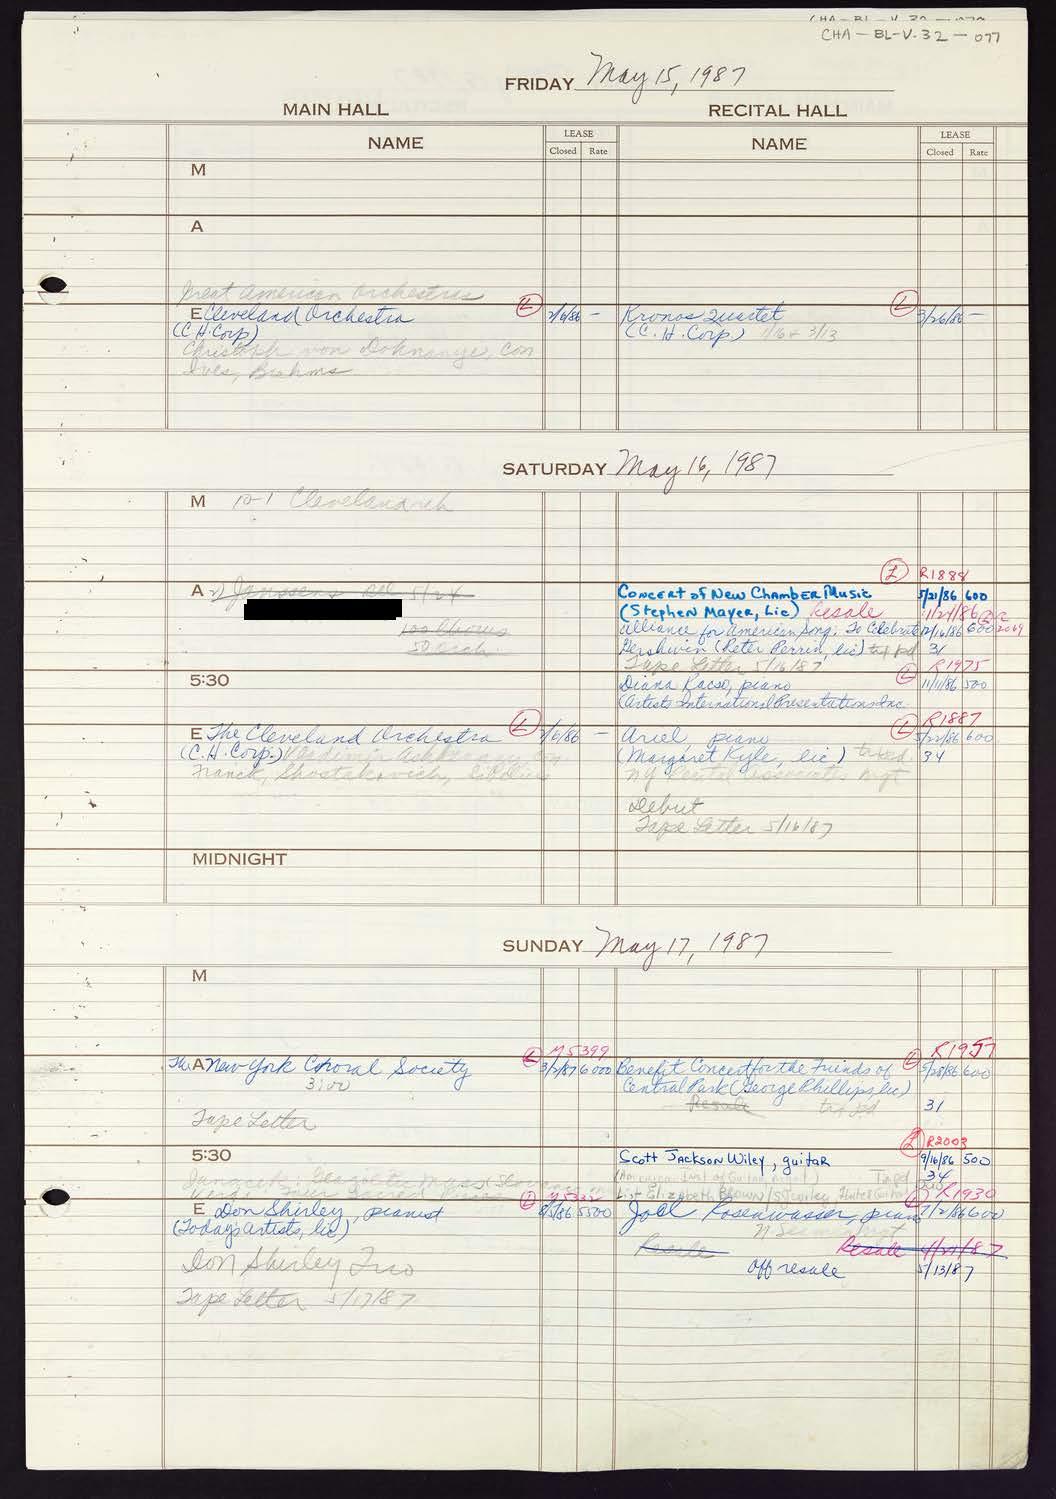 CHA-BL-V.32-077
FRIDAY May 15, 1987
MAIN HALL RECITAL HALL
NAME LEASE Closed Rate NAME LEASE Closed Rate
M
A
Great American Orchestras
E Cleveland Orchestra L 2/6/86 - Kronos Quartet L 3/26/86 -
(C.H. Corp) (C.H. Corp) 1/16 + 3/13
Christoph von Dohnanyi, con
Ives, Brahms
SATURDAY May 16, 1987
M 10-1 Cleveland reh
L R1888
A Janssens 5/24 Concert of New Chamber Music 5/21/86 600
(Stephen Mayer, Lic) Resale 11/24/86
100 Chorus Alliance for American Song: To Celebrate 12/16/86 600 2069
50 orch. Gershwin (Peter Perrin, lic) tax pd 31
Tape Letter 5/16/87 L R1975
5:30 Diana Kacso, piano 11/11/86 500
(Artists International Presentations Inc.
L R1887
E The Cleveland Orchestra L 2/6/86 - Ariel piano 5/22/86 600
(C.H. Corp.) Vladimir Ashkenazy, con (Margaret Kyle, lic) 34
Franck, Shostakovich, Sibelius NY Recital Associates Mgt
Debut
Tape Letter 5/16/87
MIDNIGHT
SUNDAY May 17, 1987
M
L M5399 L R1957
The A New York Choral Society 3/2/87 6000 Benefit Concert for the Friends of 5/28/86 600
3:00 Central Park (George Phillips, lic)
Resale tax pd 31
Tape Letter
L R2003
5:30 Scott Jackson Wiley, guitar 9/16/86 500
(American Inst of Guitar, Mgmt) 34
L R1930
E Don Shirley, pianist 5500 Joel Rosenwasser, piano 7/2/86 600
(Today's Artists, lic)
Don Shirley Trio Resale Resale 4/21/87
off resale 5/13/87
Tape Letter 5/17/87